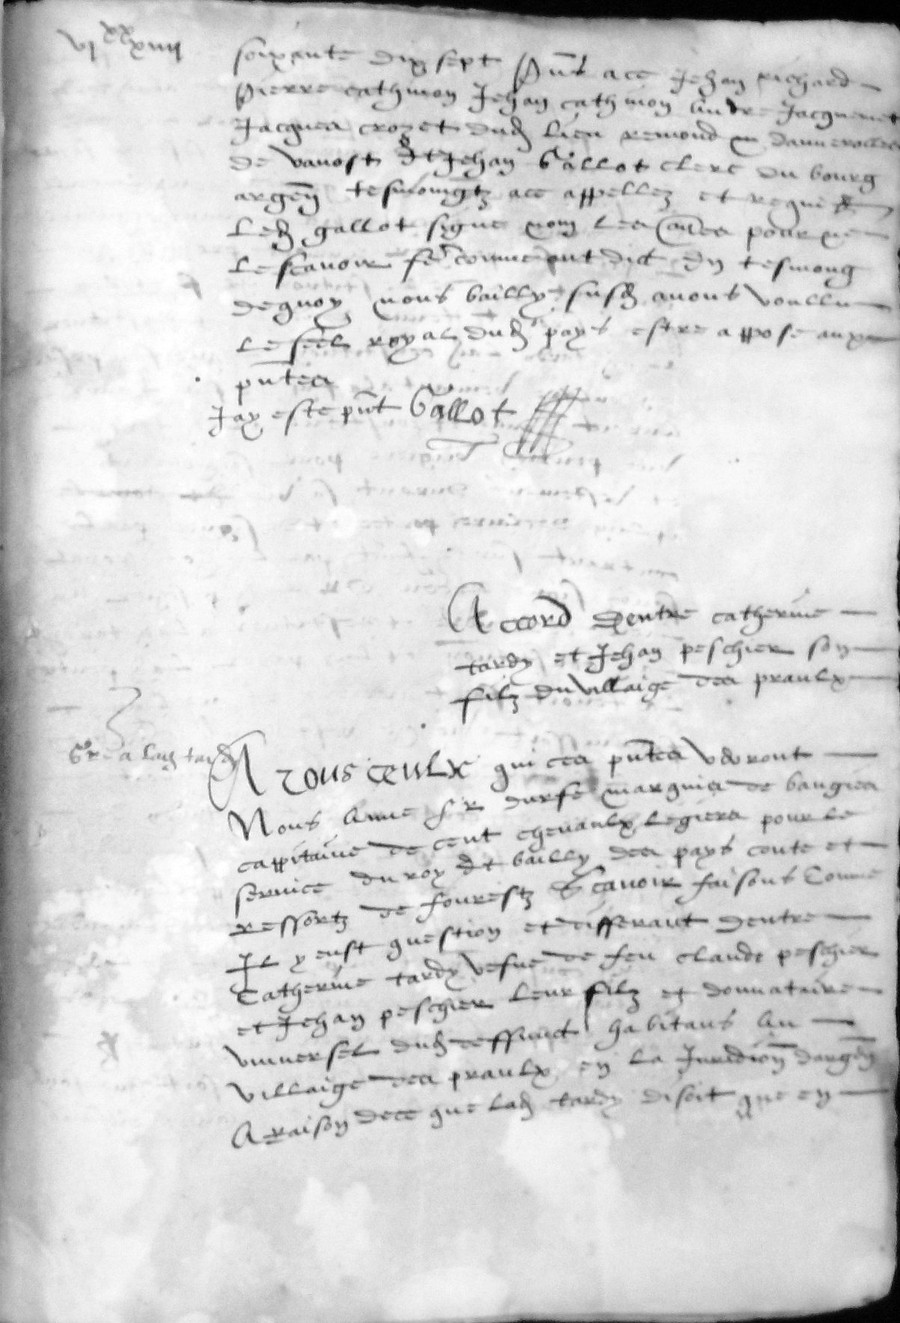 vi xx xiiii
soixante dix sept pnts a ce Jehan richard
Pierre cathinon Jehan cathinon Andre Jacquemet
Jacques crozet dud lieu remond
de vanost et Jehan Gallot clerc du bourg
argen tesmoingtz a ce appellez et requis
Led gallot signe non les aultres pour ne
le scavoir fe comme ont dict En tesmong
dequoy nous bailly susd avons voullu
le seel royal dud pays estre appose aux
pntes
Jay este pnt Gallot
Accord Dentre catherine
tardy et Jehan peschier son
filz du villaige des praulx
Gre a lad tardy
A TOUS CEULX qui ces pntes verront
Nous Anne sr durfe marquis de baugies
cappitaine de cent chevaulx legiers pour le
service du roy et bailly des pays conte et
ressortz de fourestz Scavoir faisons Comme
Il y eust question et differant Dentre
Catherine tardy vefve de feu claude peschier
et Jehan peschier leur filz et donnataire
universel dud deffunct habitans Au
villaige des praulx en la Juridion dargen
A raison de ce que lad tardy disoit que en